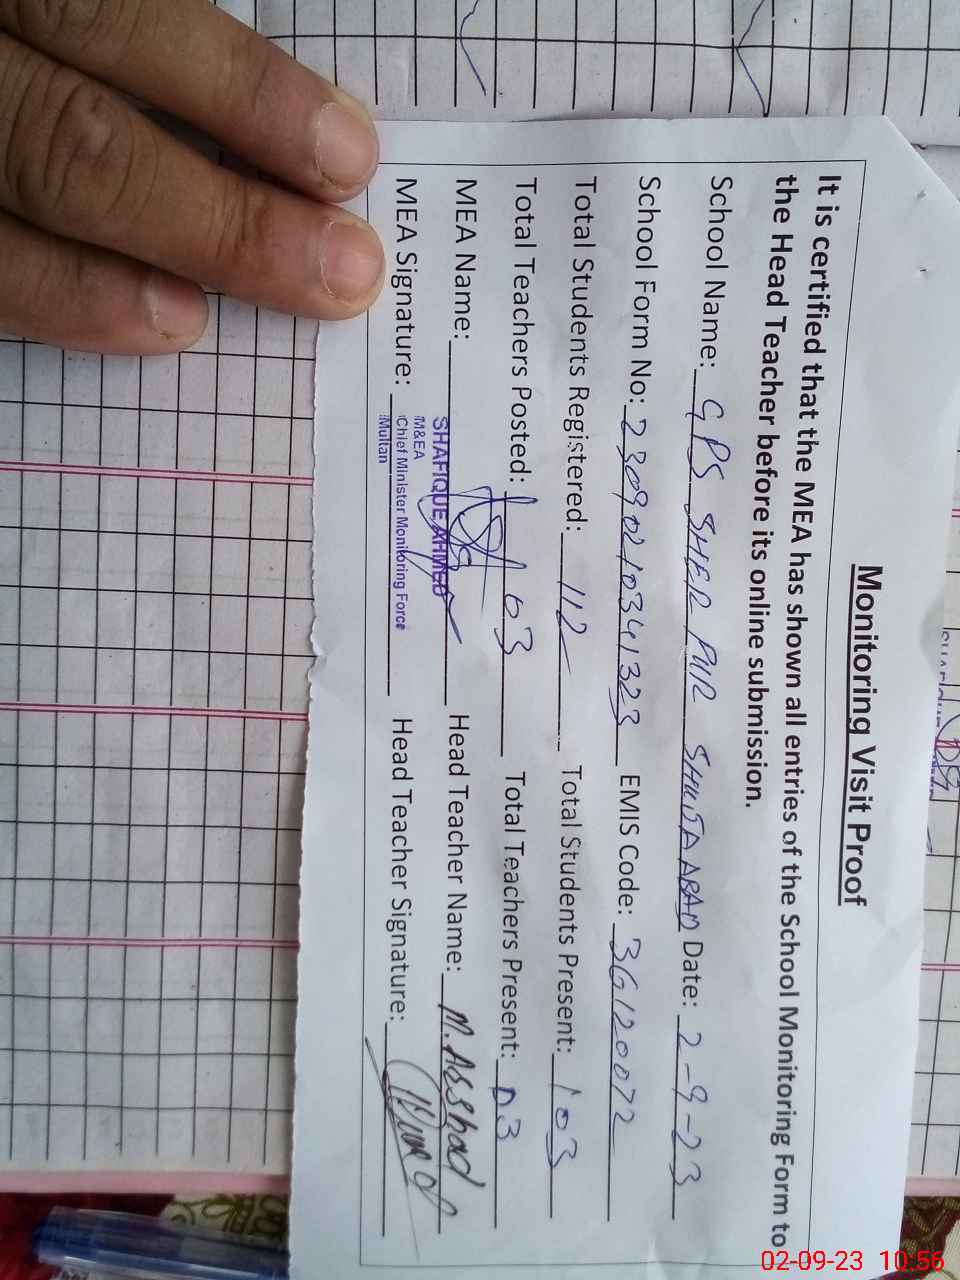 Monitoring Visit Proof
It is certified that the MEA has shown all entries of the School Monitoring Form to
the Head Teacher before its online submission.
School Name: GPS SHER PUR SHUJAABAD Date: 2-9-23
School Form No: 23090210341323 EMIS Code: 36120072
Total Students Registered: 112 Total Students Present: 103
Total Teachers Posted: 03 Total Teachers Present: 03
MEA Name: SHAFIQUE AHMED Head Teacher Name: M. Asshad
M&EA
MEA Signature: Chief Minister Monitoring Force Head Teacher Signature:
Multan
02-09-23 10:56